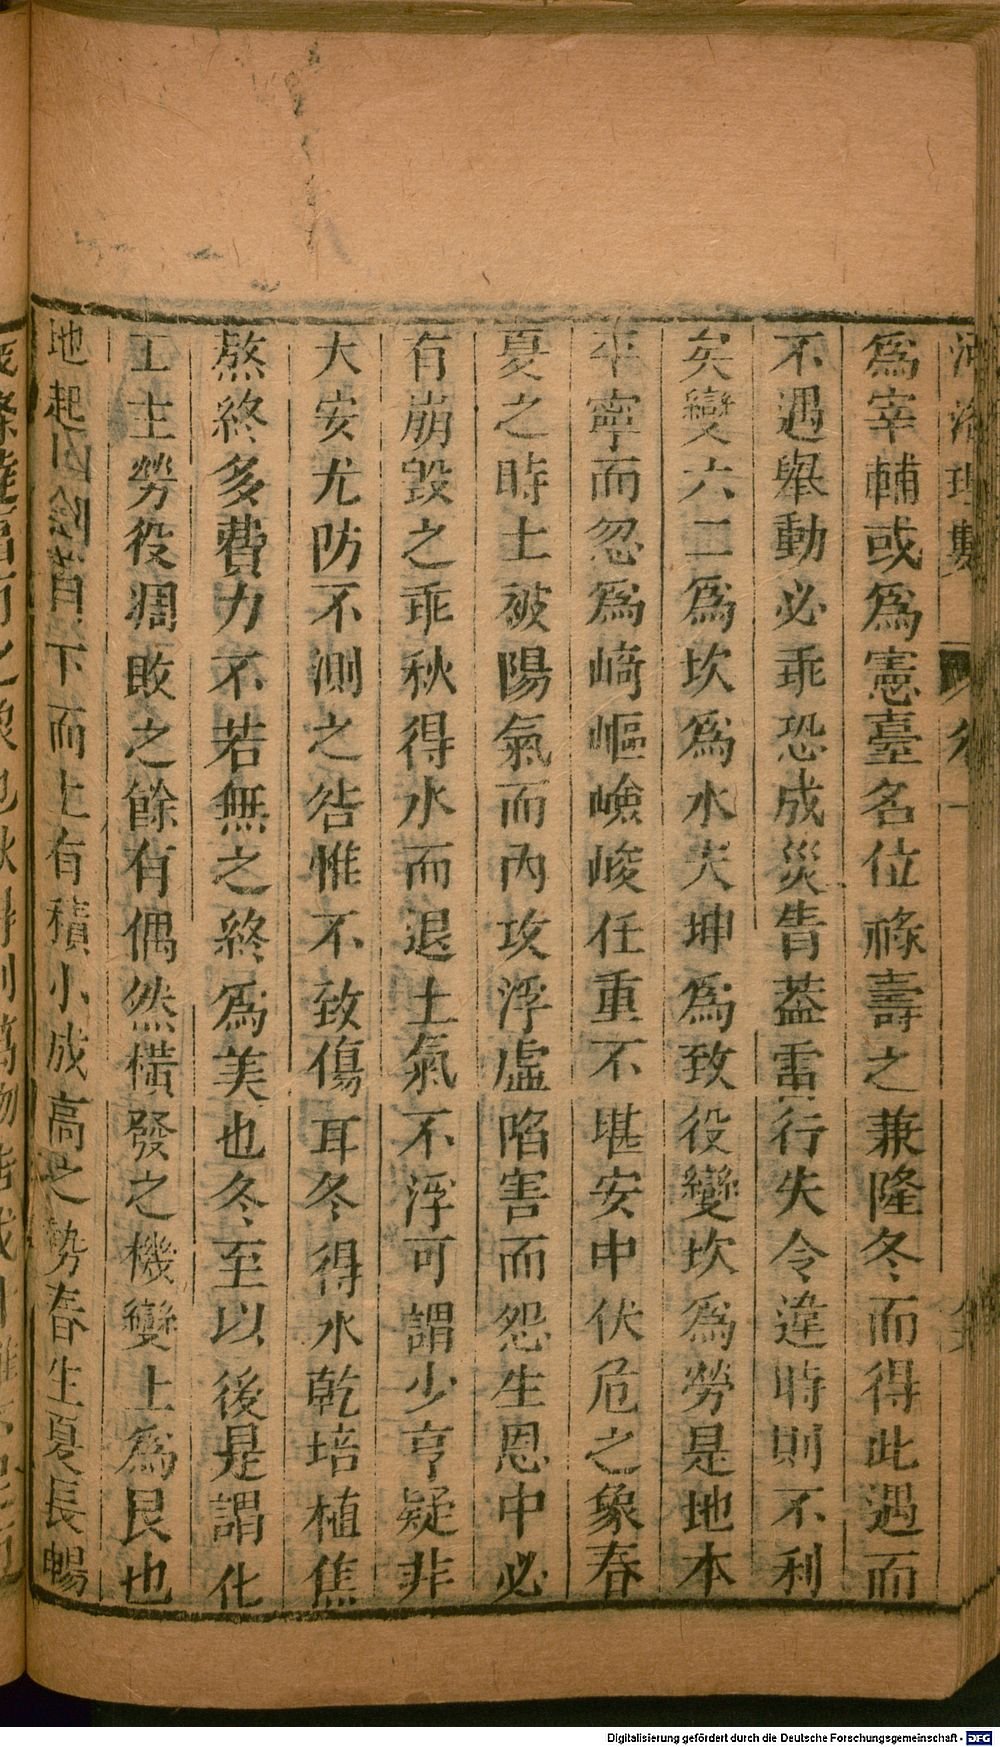 河洛理數 卷一
爲宰輔或爲憲臺名位祿壽之兼隆冬而得此遇而
不遇舉動必乖恐成災眚葢雷行失令違時則不利
矣變六二爲坎爲水夫坤爲致役變坎爲勞是地本
平寧而忽爲﨑嶇嶮峻任重不堪安中伏危之象春
夏之時土被陽氣而內攻浮虛陷害而怨生恩中必
有崩毀之乖秋得水而退土氣不浮可謂少亨疑非
大安尤防不測之咎惟不致傷耳冬得水乾培植焦
熬終多費力不若無之終爲美也冬至以後是謂化
工主勞役凋敗之餘有偶然橫發之機變上爲艮也
地起凶劍首下而上有積小成高之勢春生夏長暢
Digitalisierung gefördert durch die Deutsche Forschungsgemeinschaft - DFG